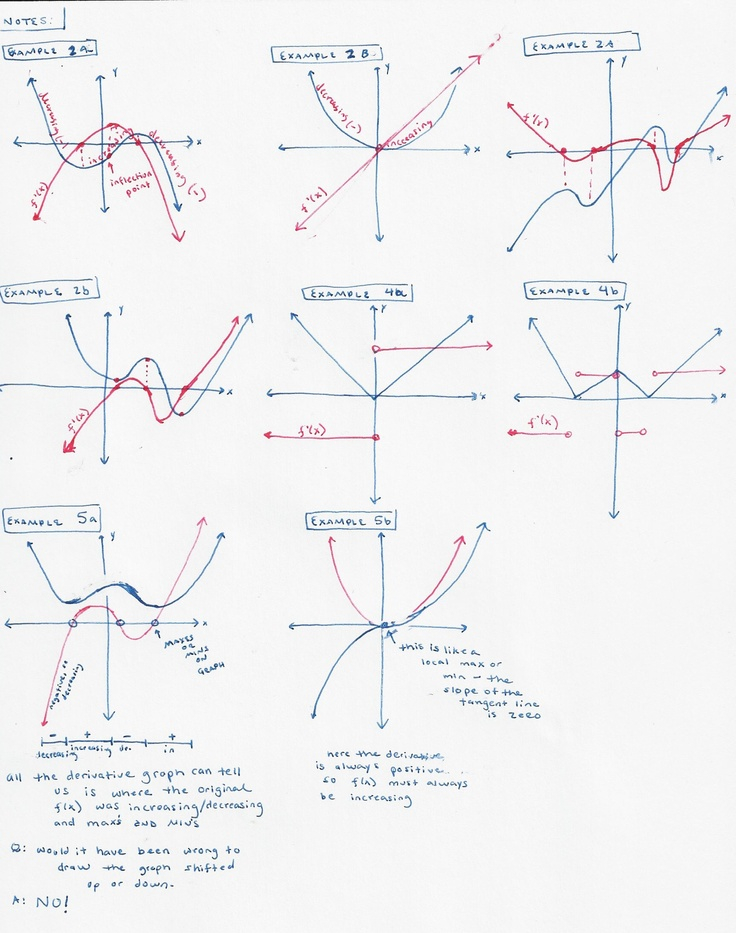 NOTES:
EXAMPLE 2a
y
x
decreasing (-)
increasing
decreasing (-)
f'(x)
inflection
point
EXAMPLE 2B
y
x
decreasing (-)
increasing
f'(x)
EXAMPLE 2A
y
x
f'(x)
EXAMPLE 2b
y
x
f'(x)
EXAMPLE 4a
y
x
f'(x)
EXAMPLE 4b
y
x
f'(x)
EXAMPLE 5a
y
x
MAXES
OR
MINS
ON
GRAPH
negative so
decreasing
- + - +
decreasing increasing de. in
all the derivative graph can tell
us is where the original
f(x) was increasing/decreasing
and max's AND MIN'S
Q: would it have been wrong to
draw the graph shifted
up or down.
A: NO!
EXAMPLE 5b
y
x
this is like a
local max or
min - the
slope of the
tangent line
is zero
here the derivative
is always positive...
so f(x) must always
be increasing